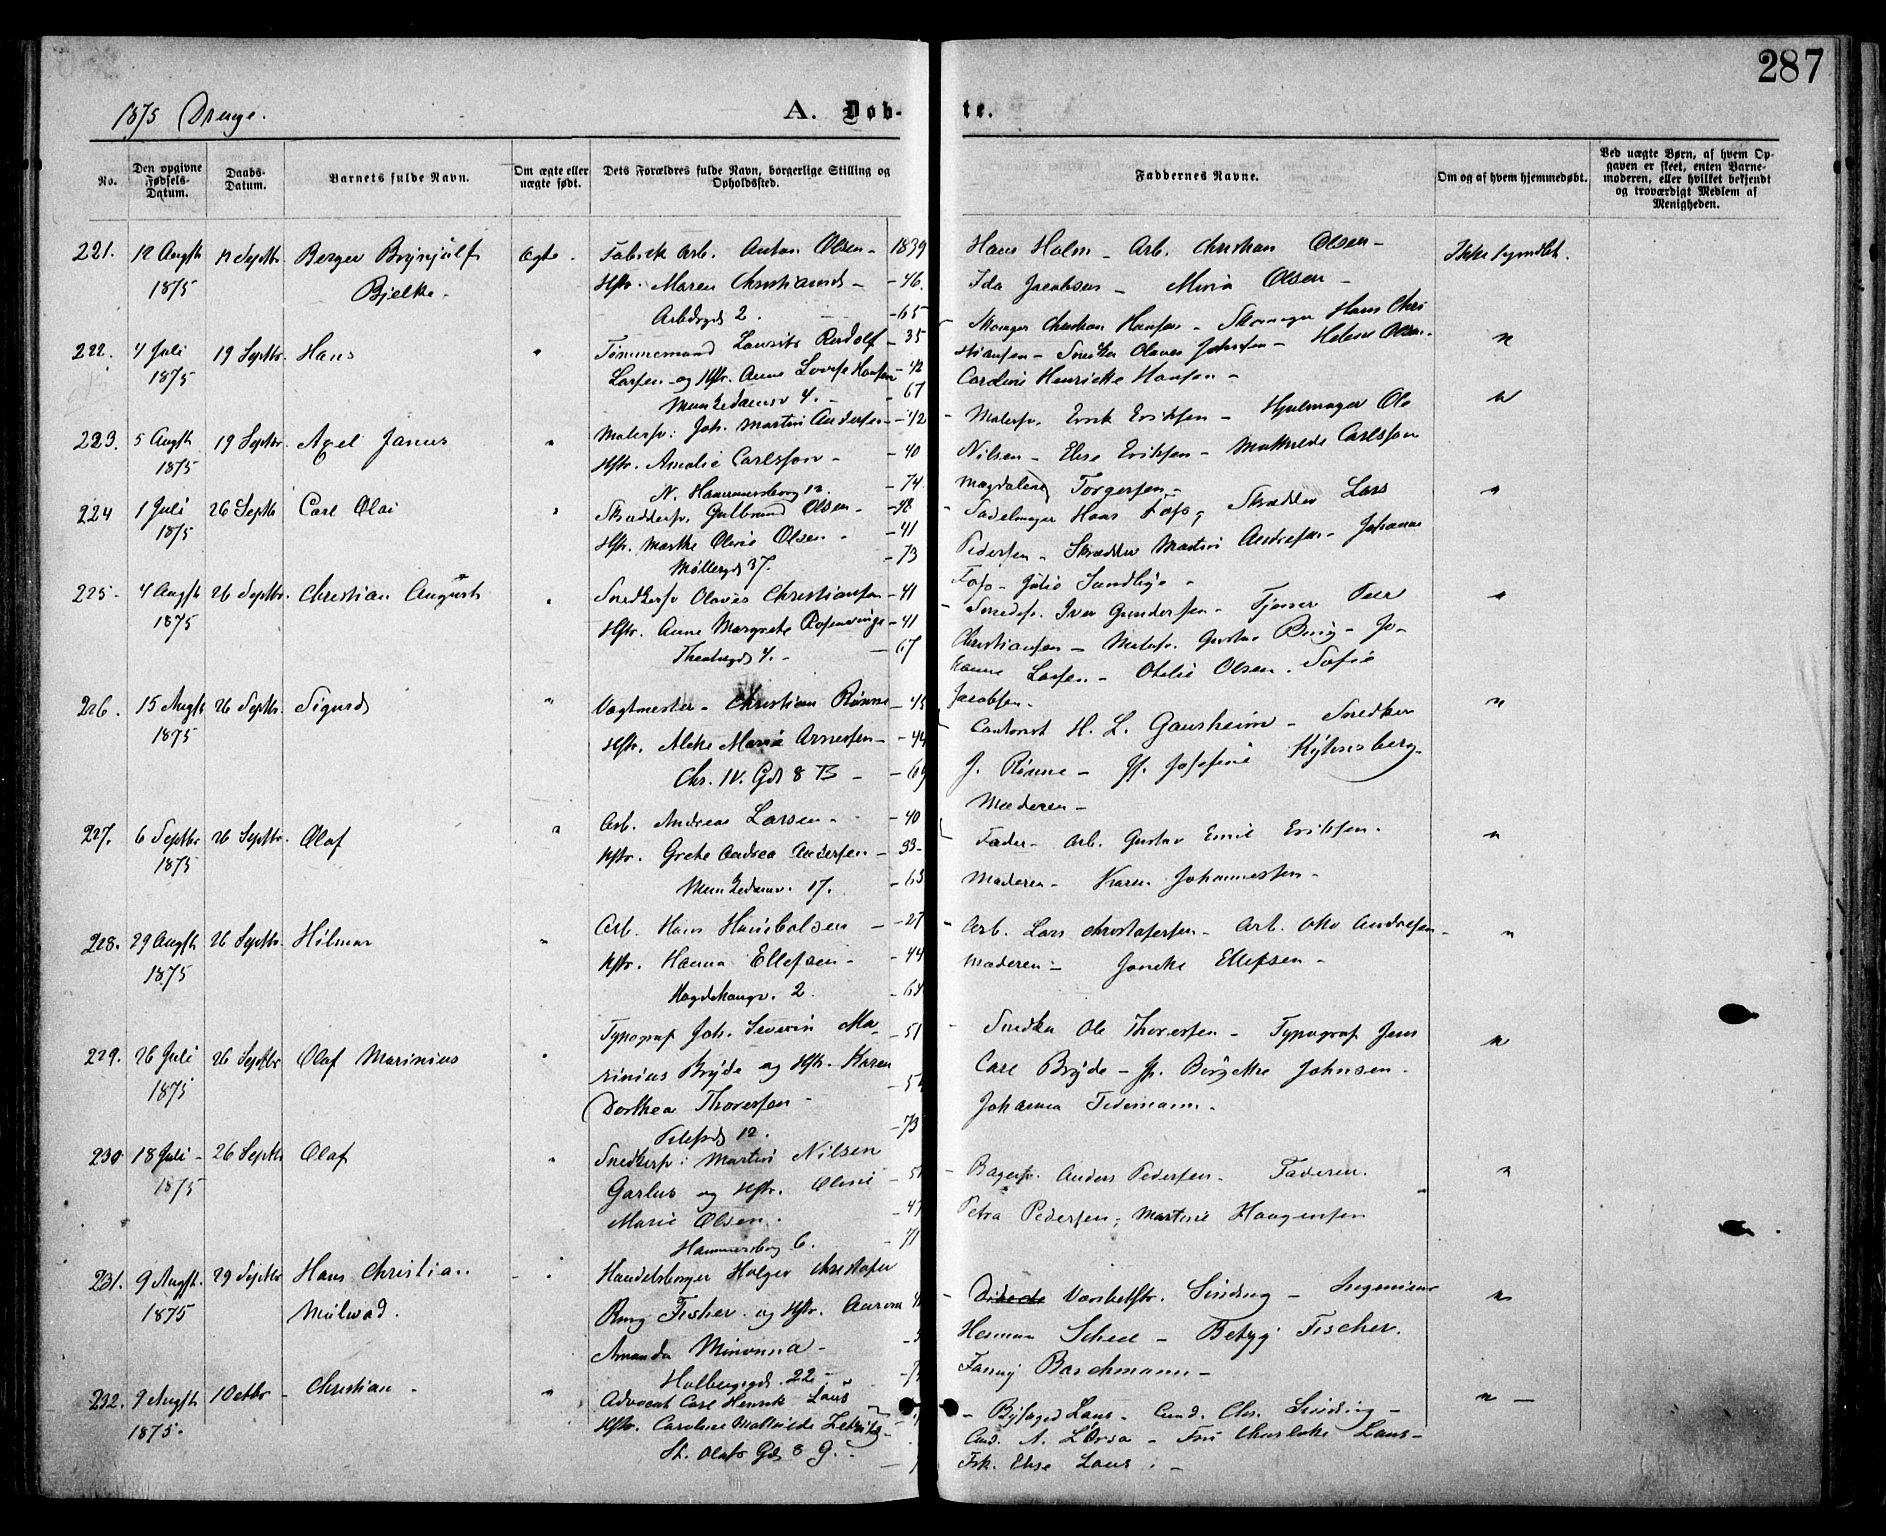 287
1875 Drenge.
A. Døb-
te.
No.
Den opgivne Fødsels-Datum.
Daabs-Datum.
Barnets fulde Navn.
Om ægte eller uægte født.
Dets Forældres fulde Navn, borgerlige Stilling og Opholdssted.
Faddernes Navne.
Om og af hvem hjemmedøbt.
Ved uægte Børn, af hvem Op-
gaven er skeet, enten Barne-
moderen, eller hvilket bekjendt
og troværdigt Medlem af
Menigheden.
221. 12 Augst 1875
Berger Brynjulf
Bjelke
Ægte
Fabrik Arb. Anton Olsen - 1839
Hstr. Maren Christiansd - 46.
Arbdsgd 2. - 65
Hans Holm - Arb. Christian Olsen -
Ida Jacobsen - Olsen -
Ikke
222. 4 Juli 1875 19 Septbr. Hans "
Tømmermand Laurits Rudolf - 35
Larsen - og Hstr. Anne Lovise Hansen - 42
Munkedamsv 4. - 67
Christian Hansen - Skomager Hans Chri
stiansen - Snedker Olaves Johnsen - Helene Olsen -
Caroline Henriette Hansen -
"
223. 5 Augst 1875 19 Septbr. Axel Janus "
Malersv. Joh. Martin Andersen - 42
Hstr. Amalie Carlsson - 40
N. Hammersborg 12. - 74
Malersv. Erik Eriksen - Hjulmager Ole
Nilsen - Else Eriksen - Mathilde Carlsson
Magdalene Torgersen -
"
224 1 Juli 1875 26 Septb Carl Olai "
Skræddersv. Gulbrand Olsen - 48
Hstr. Marthe Oline Olsen - 41
Møllergd 37. - 73
Sadelmager Hans Foss, Skrædder Lars
Pedersen - Skrædder Martin Andresen - Johanne
Foss - Julie Sundbye -
"
225 - 4 Augst 1875 26 Septbr. Christian August "
Snedkersv Olaves Christiansen - 41
Hstr. Anne Margrete Rosenvinge - 41
Theatergd 4. - 67
Snedsv. Iver Gundersen - Tjener Peer
Christiansen - Malersv. Gustav Bing - Jo-
hanne Larsen - Otilie Olsen. Sofie
Jacobsen -
"
226. 15 Augst 1875 26 Septbr. Sigurd "
Vagtmester - Christian Rønne - 45
Hstr. Marie Arnesen - - 44
Chr. IV. Gd 8 B - - 69
Cantorist H. L. Gausheim - Snedker
J. Rønne - Jf. Josefine
Moderen -
"
227. 6 Septbr 1875 26 Septbr. Olaf "
Arb. Andreas Larsen - - 40
Hstr. Grete Andrea Andersen - 33 -
Munkedamsv. 17. - 63
Fader - Arb. Gustav Emil Eriksen.
Moderen - Karen Johannessen -
"
228. 29 Augst 1875 26 Septbr. Hilmar "
Arb. Hans - 27
Hstr. Hanna Ellefsen - - 44
2. - 64
Arb. Lars Christofersen - Arb. Andresen -
Moderen - Ellefsen -
"
229. 26 Juli 1875 26 Septbr Olaf Marinius "
Typograf Joh. Severin Ma- - 51
rinius Bryde og Hstr. Karen
Dorthea Thoresen -
Pilestd 12. - 73
Snedker Ole Thoresen - Typograf Jens
Carl Bryde - Jf. Birgitte Johnsen -
Johanna Tidemann.
"
230 18 Juli - 1875 26 Septbr Olaf "
Snedkersv: Martin Nilsen
Garlus og Hstr. Oline - 51
Marie Olsen. - 47
Hammersborg 6. - 71
Bagersv. Anders Pedersen - Faderen.
Petra Pedersen, Martine Haagensen
"
231. 9 Augst. 1875 29 Septbr Hans Christian "
Milwad.
Handelsborger Holger Christofer
Ring Fisher og Hstr. Aurora
Amanda Minonna -
Holbergsgd. 22 -
Sinding - Ingeniør
Herman Schee - Betzy Fischer.
Fanny Baschmann -
"
232. 9 Augst 1875. 1 Octbr - Christian - "
Advocat Carl Henrik Laus
Hstr. Caroline Mathilde
St. Olafs Gd 8 g. -
Byfoged Laus - Cand. Chr. Sinding -
Cand. A. L'Orsa - Fru Charlotte Laus -
Frk. Else Laus. -
" -